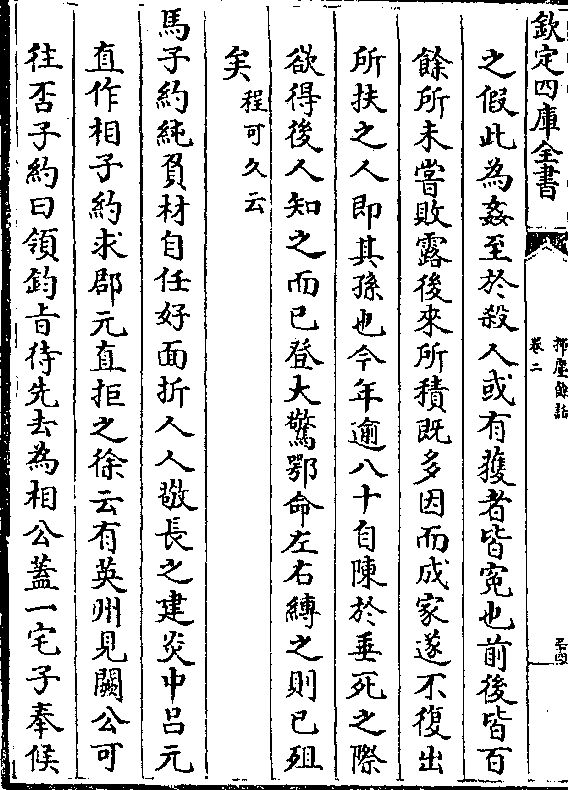 欽定四庫全書
揮麈餘話
卷二
之假此為姦至於殺人或有獲者皆寃也前後皆百
餘所未嘗敗露後來所積既多因而成家遂不復出
所扶之人即其孫也今年逾八十自陳於垂死之際
欲得後人知之而已登大驚鄂命左右縛之則已殂
矣程可久云
馬子約純負材自任好面折人人敬長之建炎中吕元
直作相子約求郡元直拒之徐云有英州見闕公可
往否子約曰領鈞㫖待先去為相公蓋一宅子奉候